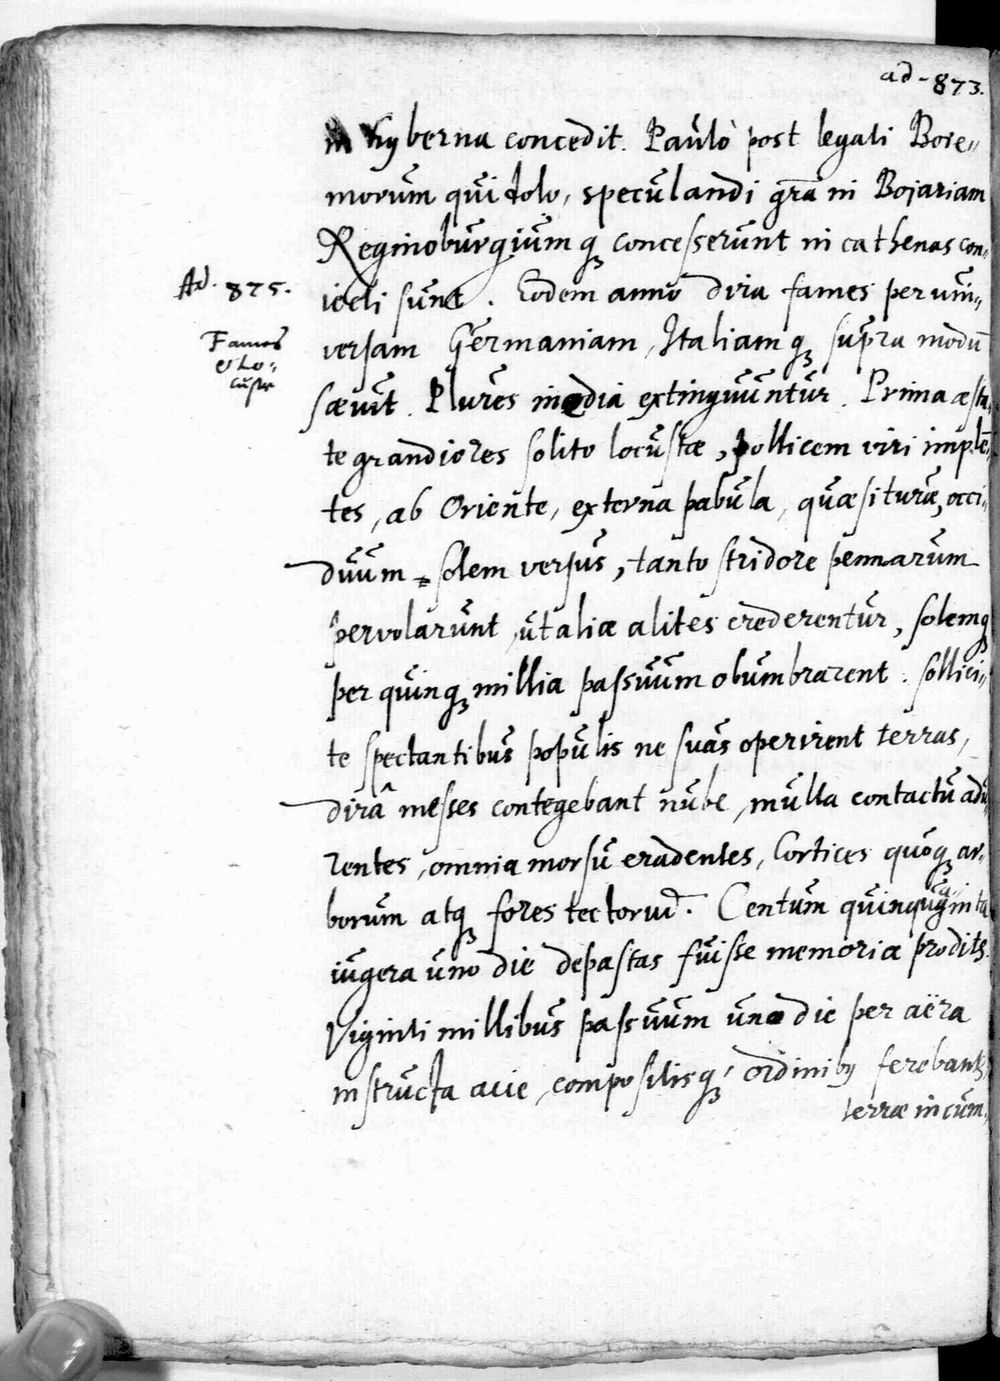 ad - 873.
in hyberna concedit. Paulò post legati Boie„
morum qui dolo, speculandi grã in Bojariam
Reginoburgiumq concesserunt in cathenas con„
Ad. 875.
iecti sunt. Eodem anno dira fames per uni„
Fames
& Lo„
custæ
versam Germaniam, Italiamq supra modũ
sævit. Plures inedia extinguuntur. Prima æsta„
te grandiores solito locustæ, pollicem viri implẽ„
tes, ab Oriente, externa pabula, quæsituræ, occi„
duum solem versus, tanto stridore pennarum
pervolarunt, ut aliæ alites crederentur, solemq
per quinq millia passuum obumbrarent. sollici„
te spectantibus populis ne suas operirent terras,
dirâ messes contegebant nube, multa contactu adu„
rentes, omnia morsu eradentes, Cortices quoq ar„
borum atq fores tectorũ. Centum quinquaginta
iugera uno die depastas fuisse memoriæ prodits.
Viginti millibus passuum uno die per aëra
instructa acie, compositisq, ordiniby ferebants
terræ incum„